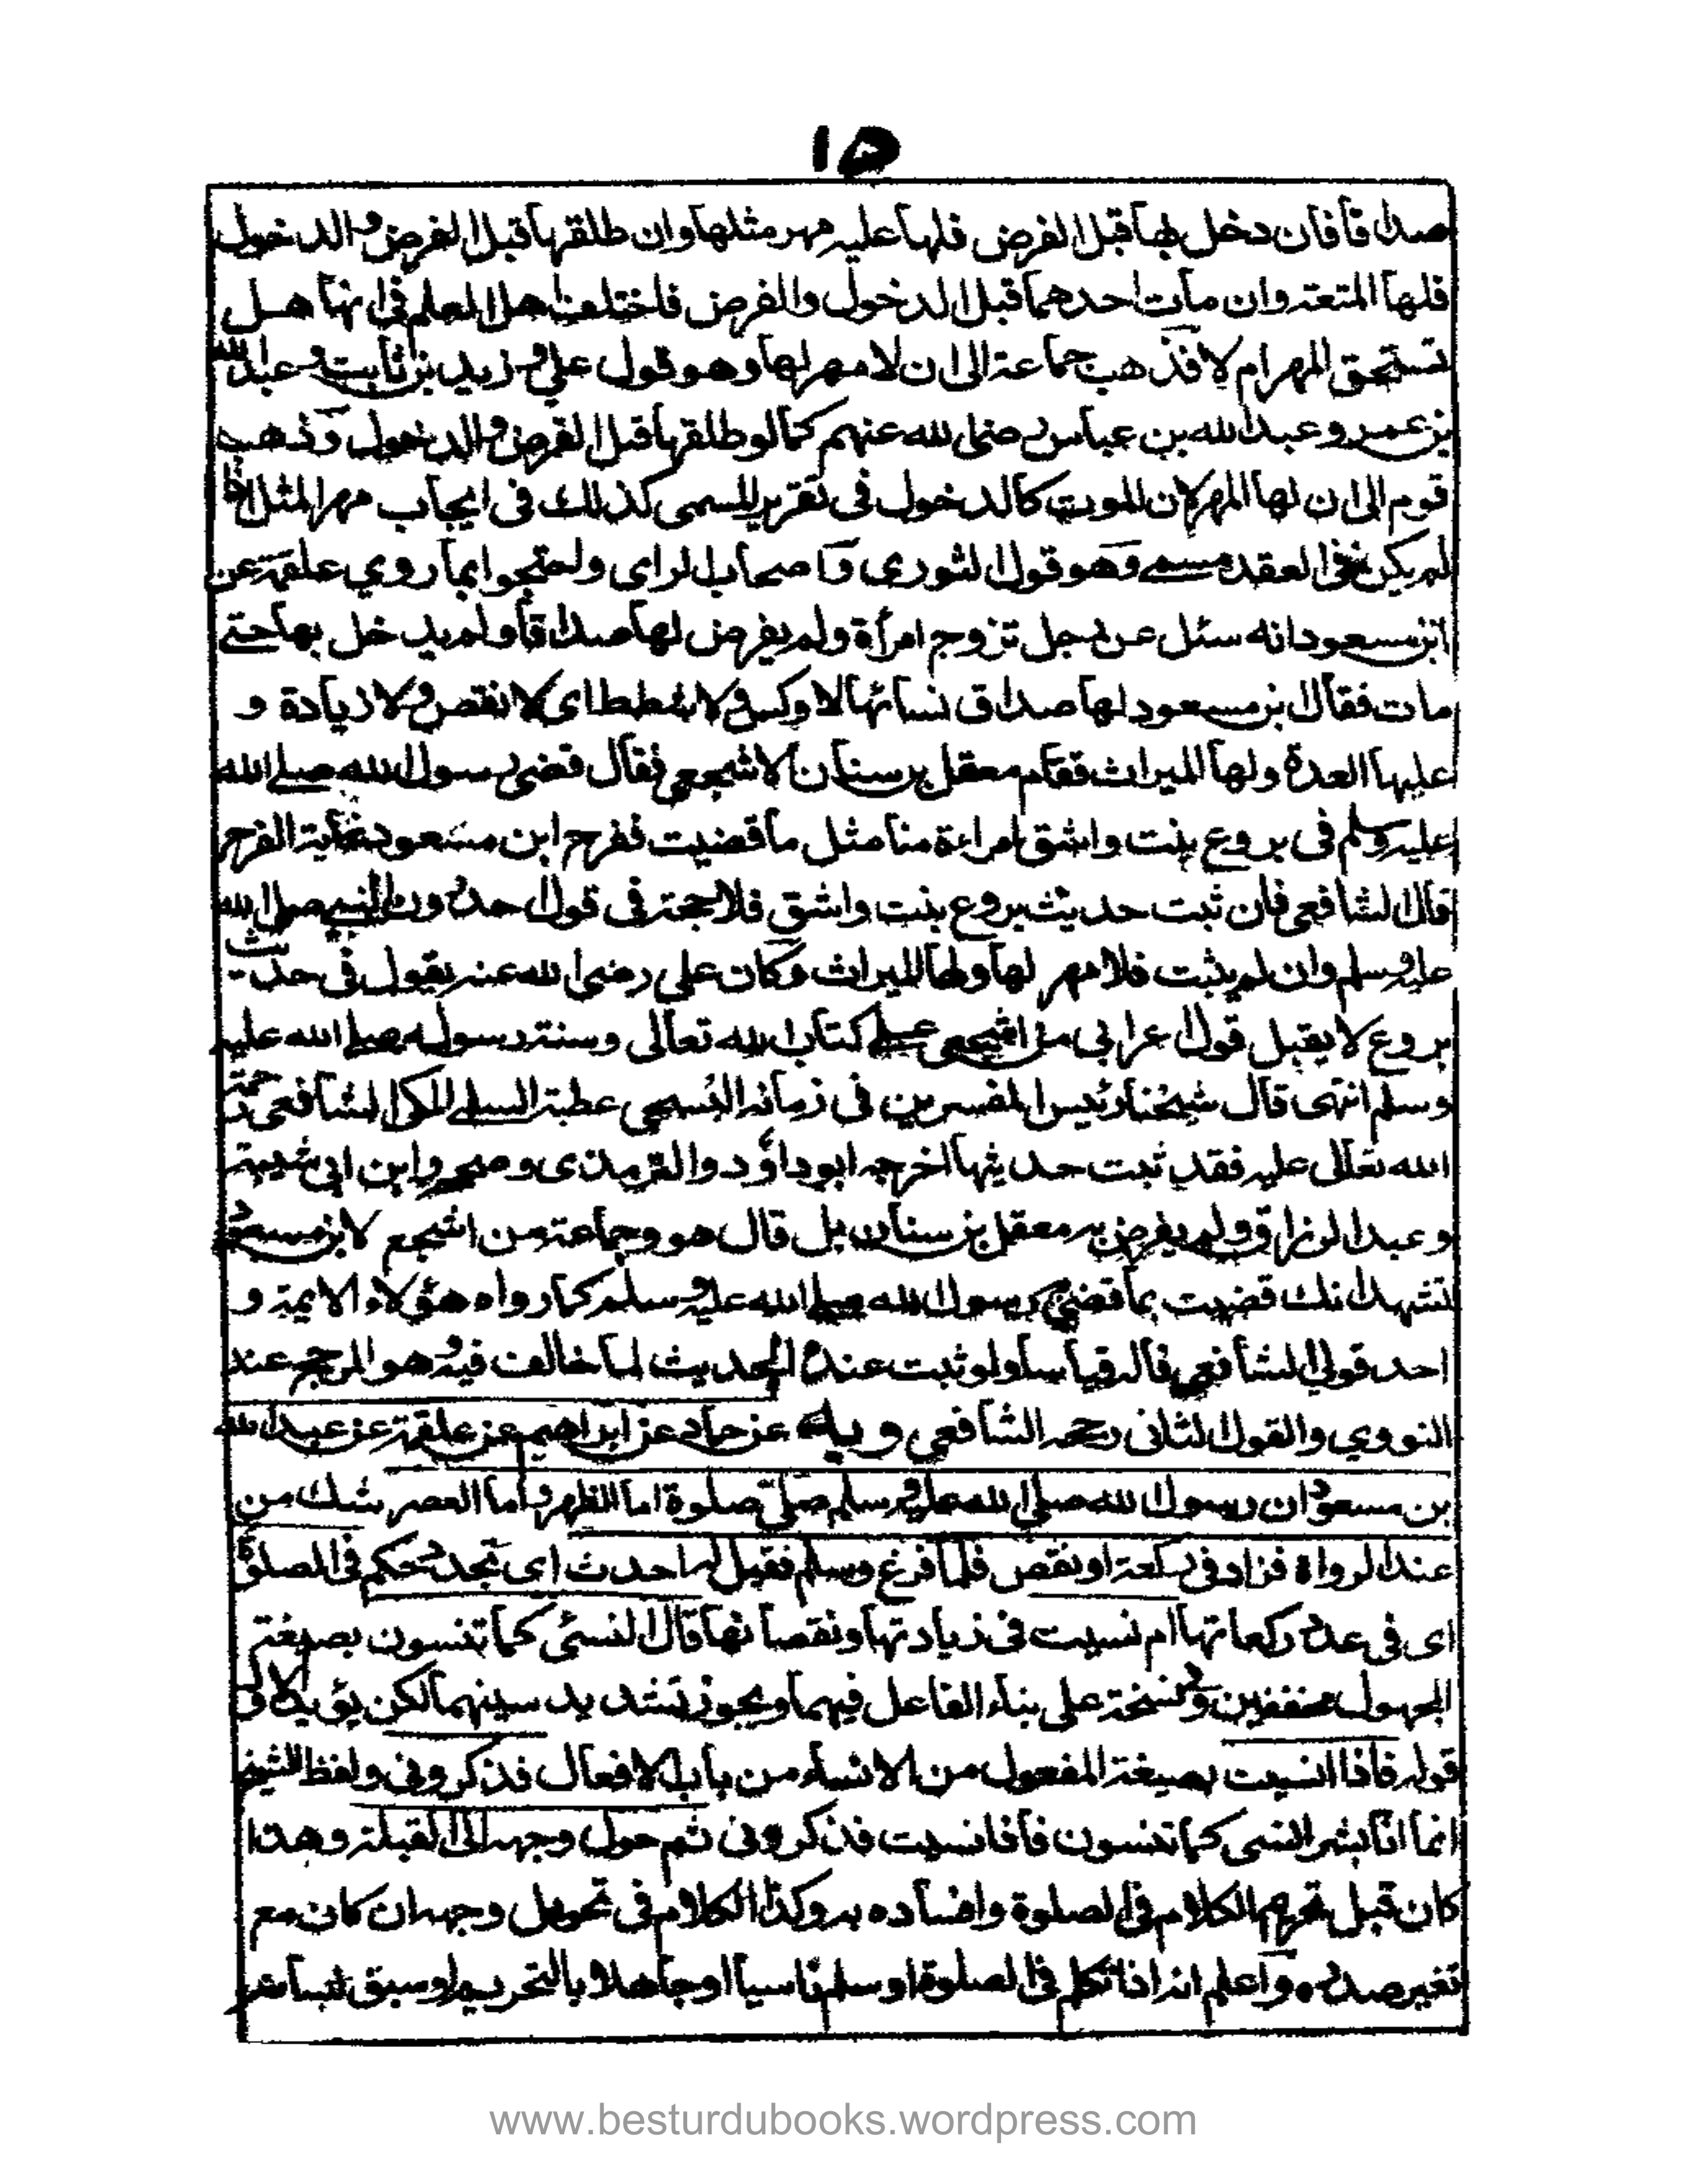 ١٥
صداقا فان دخل بها قبل الفرض فلها عليه مهر مثلها وان طلقها قبل الفرض والدخول
فلها المتعة وان مات احدهما قبل الدخول والفرض فاختلف اهل العلم فى انها هل
تستحق المهر ام لا فذهب جماعة الى ان لا مهر لها وهو قول علي وزيد بن ثابت وعبد الله
بن عمر وعبد الله بن عباس رضى الله عنهم كما لو طلقها قبل الفرض والدخول وذهب
قوم الى ان لها المهر لان الموت كالدخول فى تقرير المسمى كذلك فى ايجاب مهر المثل اذا
لم يكن فى العقد مسمے وهو قول الثورى واصحاب الراى واحتجوا بما روي علقمة عن
ابن مسعود انه سئل عن رجل تزوج امرأة ولم يفرض لها صداقا ولم يدخل بها حتے
مات فقال ابن مسعود لها صداق نسائها لا وكس ولا شطط اى لا نقص ولا زيادة و
عليها العدة ولها الميراث فقام معقل بن سنان الاشجعي فقال قضى رسول الله صلے الله
عليه وسلم فى بروع بنت واشق امراءة منا مثل ما قضيت ففرح ابن مسعود غاية الفرح
قال الشافعى فان ثبت حديث بروع بنت واشق فلا حجة فى قول احد دون النبے صلى الله
عليه وسلم وان لم يثبت فلا مهر لها ولها الميراث وكان علي رضى الله عنه يقول فى حديث
بروع لا يقبل قول اعرابي من اشجعى علے كتاب الله تعالى وسنة رسوله صلے الله عليه
وسلم انتهى قال شيخنا رئيس المفسرين فى زمانه المسمى عطية السلمے المكى الشافعى رحمة
الله تعالى عليه فقد ثبت حديثها اخرجه ابو داؤد والترمذى وصححه وابن ابى شيبة
وعبد الرزاق ولم يفرض به معقل بن سنان بل قال هو وجماعة من اشجع لابن مسعود
نشهد انك قضيت بما قضى رسول الله صلے الله عليه وسلم كما رواه هؤلاء الايمة و
احد قولي الشافعى قاله قياسا ولو ثبت عنده الحديث لما خالف فيه وهو المرجح عند
النووي والقول الثانى رحمه الشافعي و به عن حماد عن ابراهيم عن علقمة عن عبد الله
بن مسعود ان رسول الله صلى الله عليه وسلم صلے صلوة اما الظهر واما العصر شك من
عند الرواة فزاد فى ركعة او نقص فلما فرغ وسلم فقيل له احدث اى تجدد حكم فى الصلوة
اى فى عدد ركعاتها ام نسيت فى زيادتها ونقصانها قال انسى كما تنسون بصيغة
المجهول مخففين وفى نسخة على بناء الفاعل فيهما ويجوز تشديد سينهما لكن يؤيد الاول
قوله فاذا انسيت بصيغة المفعول من الانساء من باب الافعال فذكرونى ولفظ الشيخ
انما انا بشر انسى كما تنسون فاذا نسيت فذكرونى ثم حول وجهه الى القبلة وهذا
كان قبل تحريم الكلام فى الصلوة وافساده به وكذا الكلام فى تحويل وجهه ان كان مع
تغير صدره واعلم انه اذا تكلم فى الصلوة او سلم ناسيا او جاهلا بالتحريم او سبق لسانه
www.besturdubooks.wordpress.com